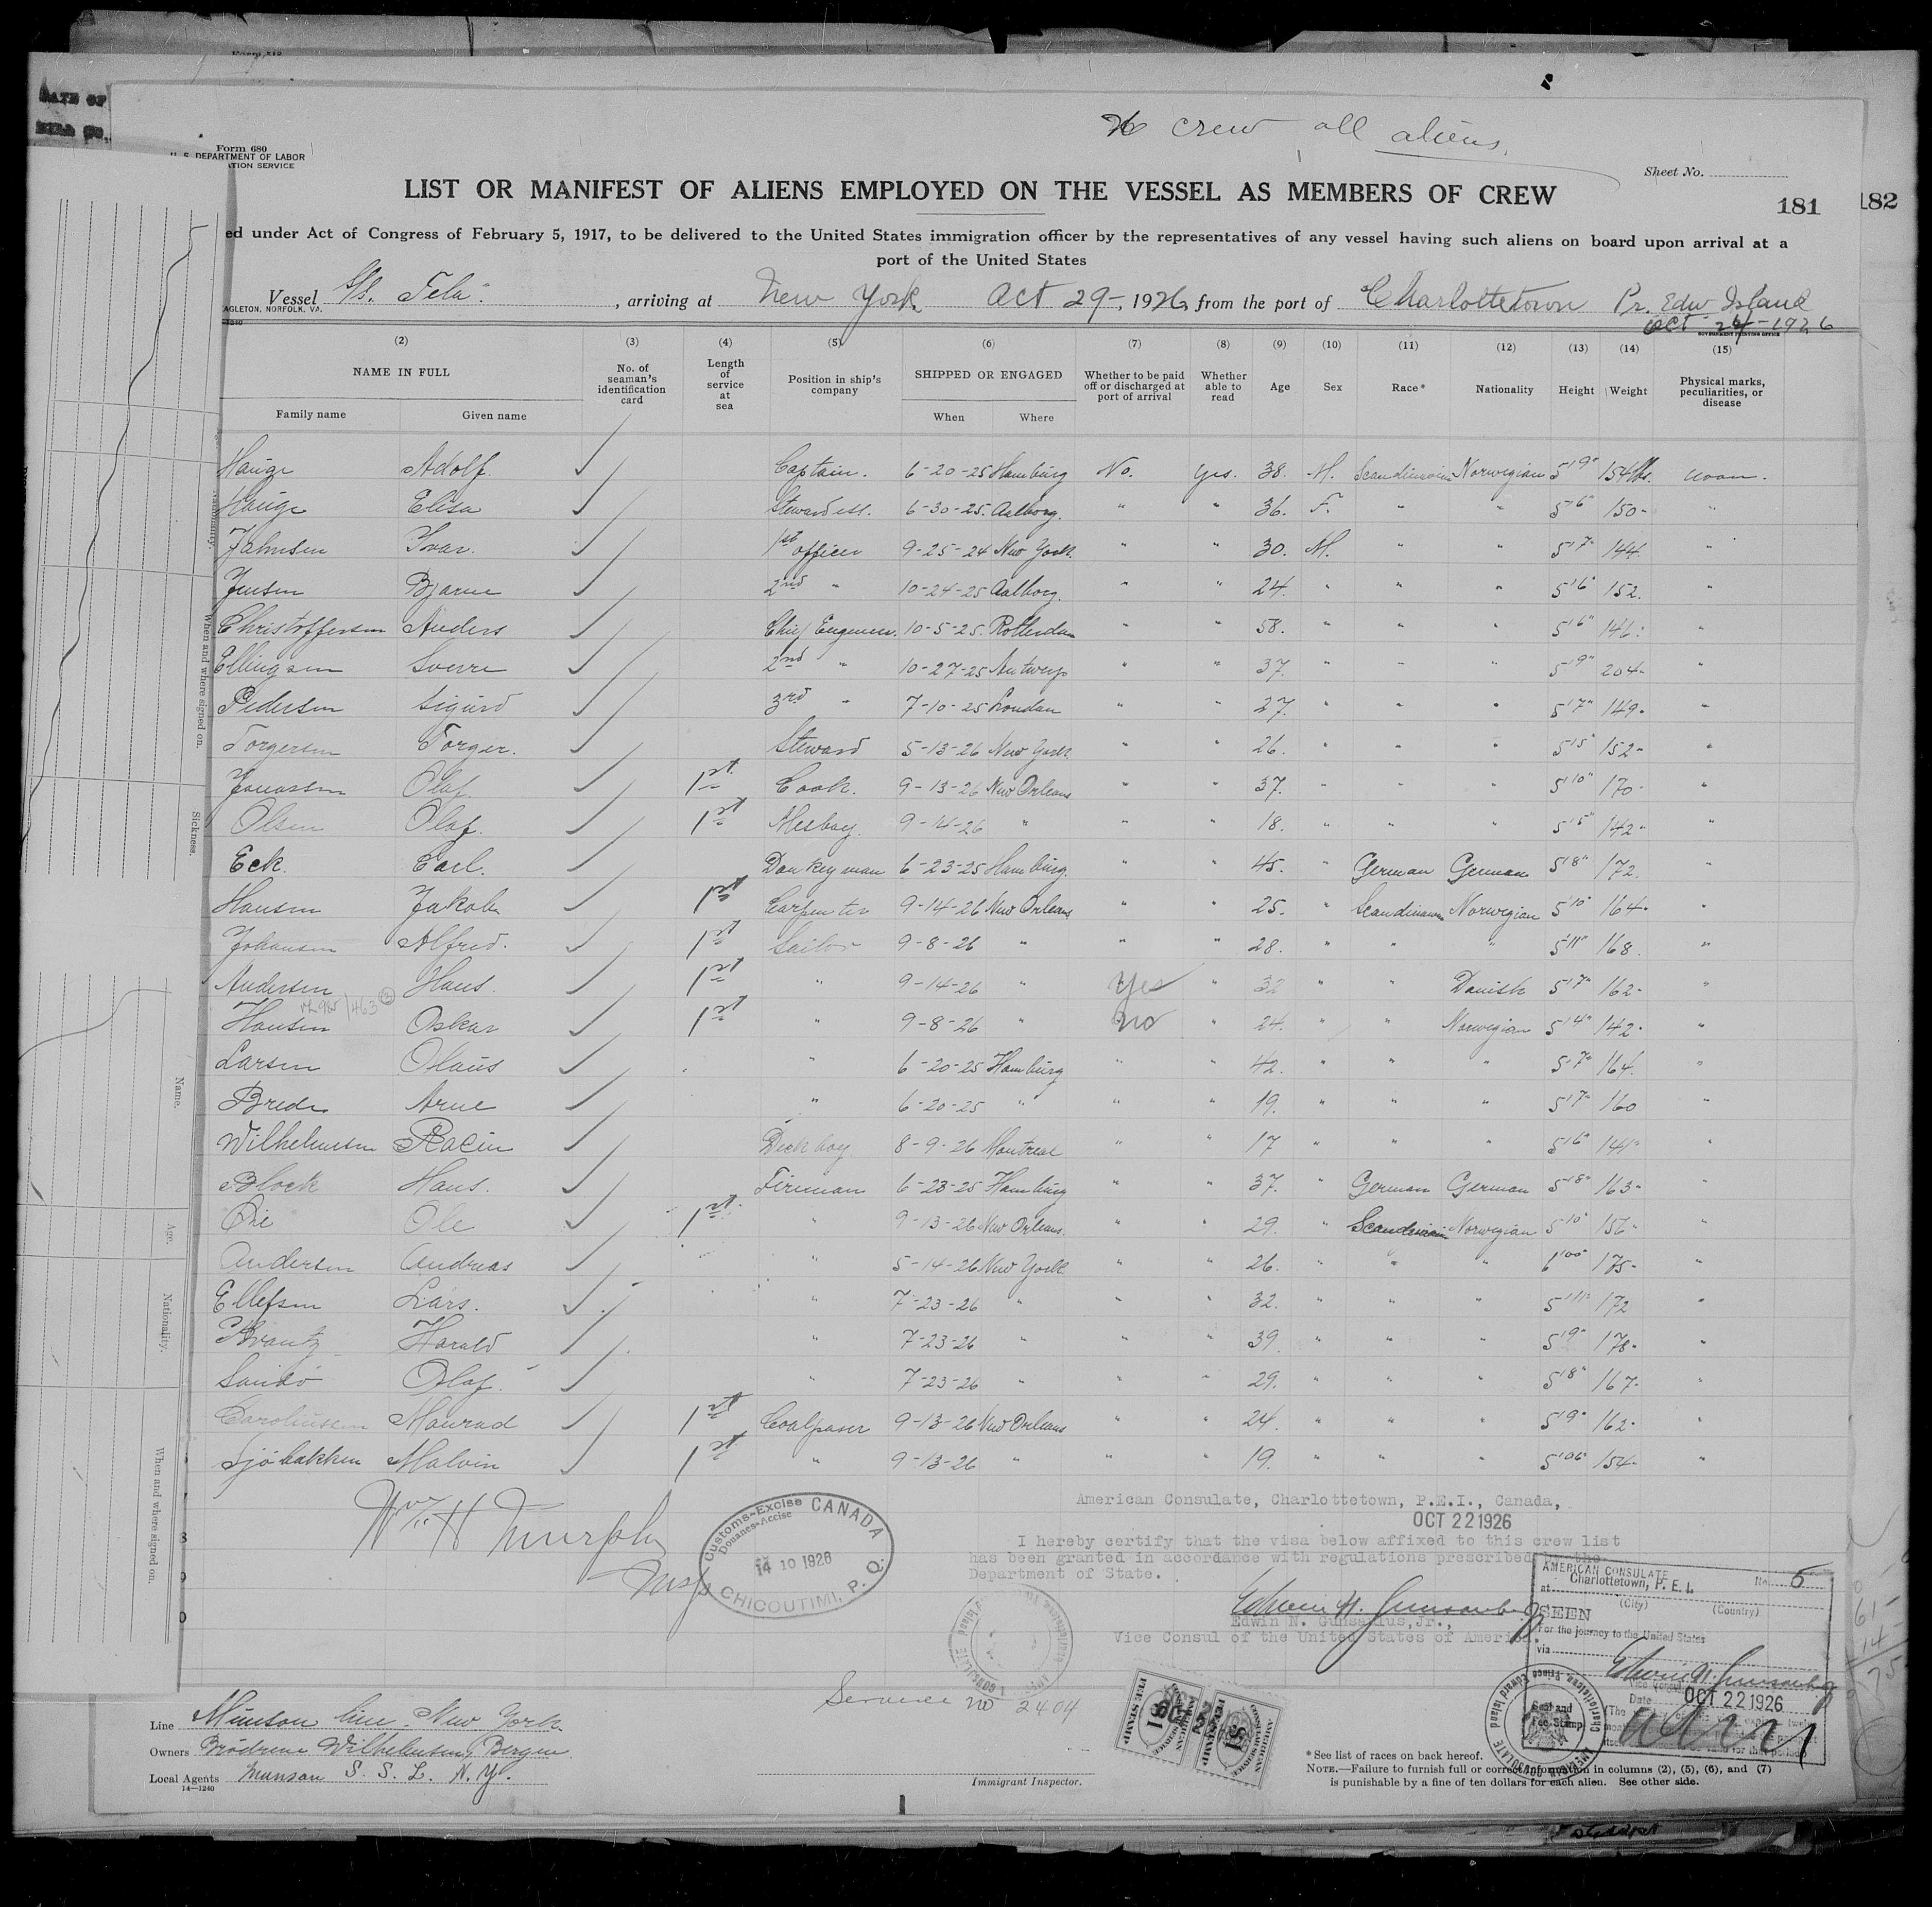 DATE OF
Form 680
U. S. DEPARTMENT OF LABOR
ATION SERVICE
26 crew all aliens.
Sheet No.
LIST OR MANIFEST OF ALIENS EMPLOYED ON THE VESSEL AS MEMBERS OF CREW
181 182
ed under Act of Congress of February 5, 1917, to be delivered to the United States immigration officer by the representatives of any vessel having such aliens on board upon arrival at a
port of the United States
Vessel S/S. "Tela". , arriving at New York Oct 29-, 1926, from the port of Charlottetown Pr. Edw Island
EAGLETON, NORFOLK, VA.
Oct - 24 - 1926
GOVERNMENT PRINTING OFFICE
(2) (3) (4) (5) (6) (7) (8) (9) (10) (11) (12) (13) (14) (15)
NAME IN FULL No. of seaman's identification card Length of service at sea Position in ship's company SHIPPED OR ENGAGED Whether to be paid off or discharged at port of arrival Whether able to read Age Sex Race* Nationality Height Weight Physical marks, peculiarities, or disease
Family name Given name When Where
Hauge Adolf. Captain. 6-20-25 Hamburg No. Yes. 38. M. Scandinavian Norwegian 5'9" 154 lbs. noon.
Hauge Elisa Stewardess. 6-30-25. Aalborg. " " 36. F. " " 5'6" 150- "
Jahnsen Ivar. 1st officer 9-25-24 New York. " " 30. M. " " 5'7" 144 "
Jensen Bjarne 2nd " 10-24-25 Aalborg. " " 24. " " " 5'6" 152. "
Christoffersen Anders Chief Engeneer. 10-5-25. Rotterdam " " 58. " " " 5'6" 146. "
Ellingsen Sverre 2nd " 10-27-25 Antwerp " " 37. " " " 5'9" 204- "
Pedersen Sigurd 3rd " 7-10-25 London " " 27. " " " 5'7" 149- "
Torgersen Torger. Steward 5-13-26 New York " " 26. " " " 5'5" 152- "
Jonassen Olaf. 1st Cook. 9-13-26 New Orleans " " 37. " " " 5'10" 170- "
Olsen Olaf. 1st Mesboy. 9-14-26 " " " 18. " " " 5'5" 142- "
Eck Carl. Donkeyman 6-23-25 Hamburg. " " 45. " German German 5'8" 172. "
Hansen Jakob 1st Carpenter 9-14-26 New Orleans " " 25. " Scandinavian Norwegian 5'10" 164- "
Johansen Alfred. 1st Sailor 9-8-26 " " " 28. " " " 5'11" 168. "
Andersen Hans. 1st " 9-14-26 " Yes " 32 " " Danish 5'7" 162- "
Hansen Oskar 1st " 9-8-26 " No " 24. " " Norwegian 5'4" 142- "
Larsen Olaus " 6-20-25 Hamburg " " 42. " " " 5'7" 164. "
Brede Arne " 6-20-25 " " " 19. " " " 5'7" 160 "
Wilhelmsen Deck boy 8-9-26 Montreal " " 17 " " " 5'6" 141- "
Block Hans. Fireman 6-23-25 Hamburg " " 37. " German German 5'8" 163- "
Ole 1st " 9-13-26 New Orleans. " " 29. " Scandinavian Norwegian 5'10" 156- "
Andersen Andreas " 5-14-26 New York " " 26. " " " 6'00" 175- "
Ellefsen Lars. " 7-23-26 " " " 32. " " " 5'11" 172 "
Harald " 7-23-26 " " " 39. " " " 5'9" 178- "
Sandö Olaf. " 7-23-26 " " " 29. " " " 5'8" 167- "
Caroliussen Monrad 1st Coalpaser 9-13-26 New Orleans " " 24. " " " 5'9" 162- "
Sjöbakken Malvin 1st " 9-13-26 " " " 19. " " " 5'06" 154- "
When and where signed on.
Sickness.
Name.
Age.
Nationality.
When and where signed on.
Wm H Murphy
Customs-Excise CANADA
Douanes-Accise
14 10 1926
CHICOUTIMI, P. Q.
American Consulate, Charlottetown, P.E.I., Canada,
OCT 22 1926
I hereby certify that the visa below affixed to this crew list
has been granted in accordance with regulations prescribed by the
Department of State.
Edwin N. Gunsaulus, Jr.,
Vice Consul of the United States of America
AMERICAN CONSULATE
at Charlottetown, P. E. I. No. 5
(City) (Country)
SEEN
For the journey to the United States
via
Date OCT 22 1926
Seal and
Fee Stamp
Service No 2404
Line Munson Line. New York
Owners Brödrene Wilhelmsen, Bergen
Local Agents Munson S. S. L. N. Y.
14-1240
Immigrant Inspector.
*See list of races on back hereof.
NOTE.—Failure to furnish full or correct information in columns (2), (5), (6), and (7)
is punishable by a fine of ten dollars for each alien. See other side.